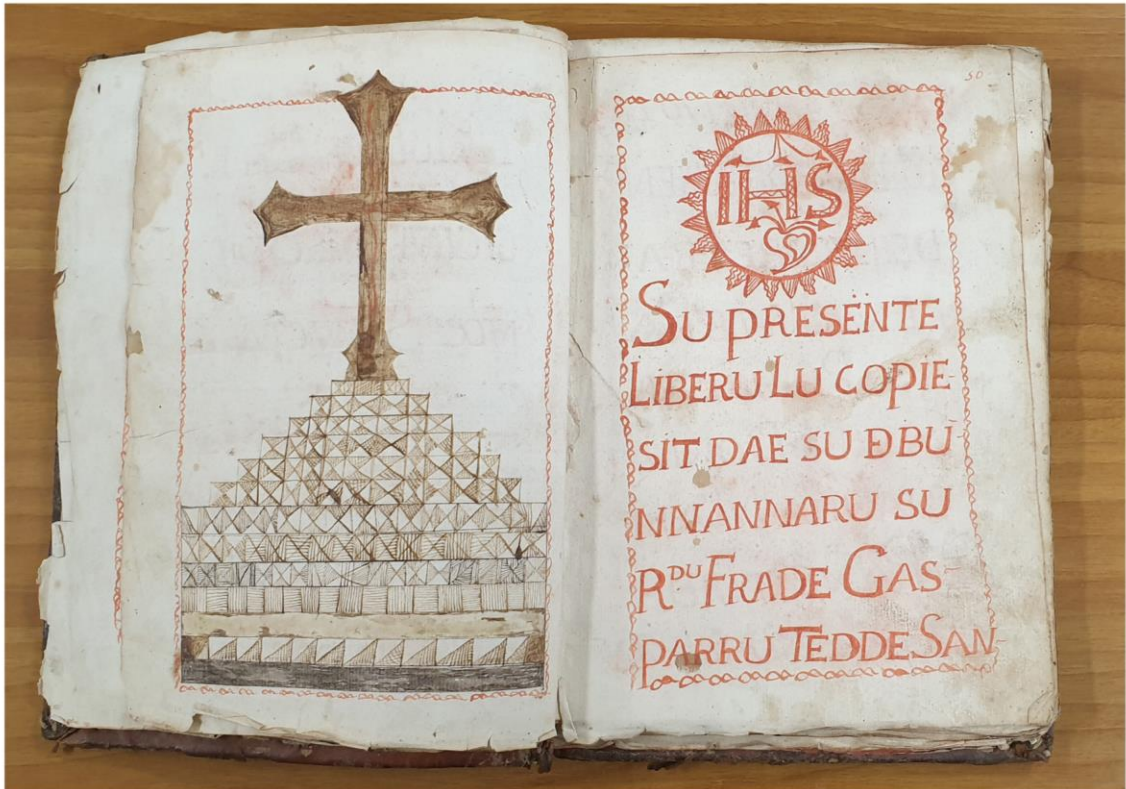 50
IHS
SU PRESENTE
LIBERU LU COPIE
SIT DAE SU ĐBU
NNANNARU SU
RDU FRADE GAS
PARRU TEDDE SAN